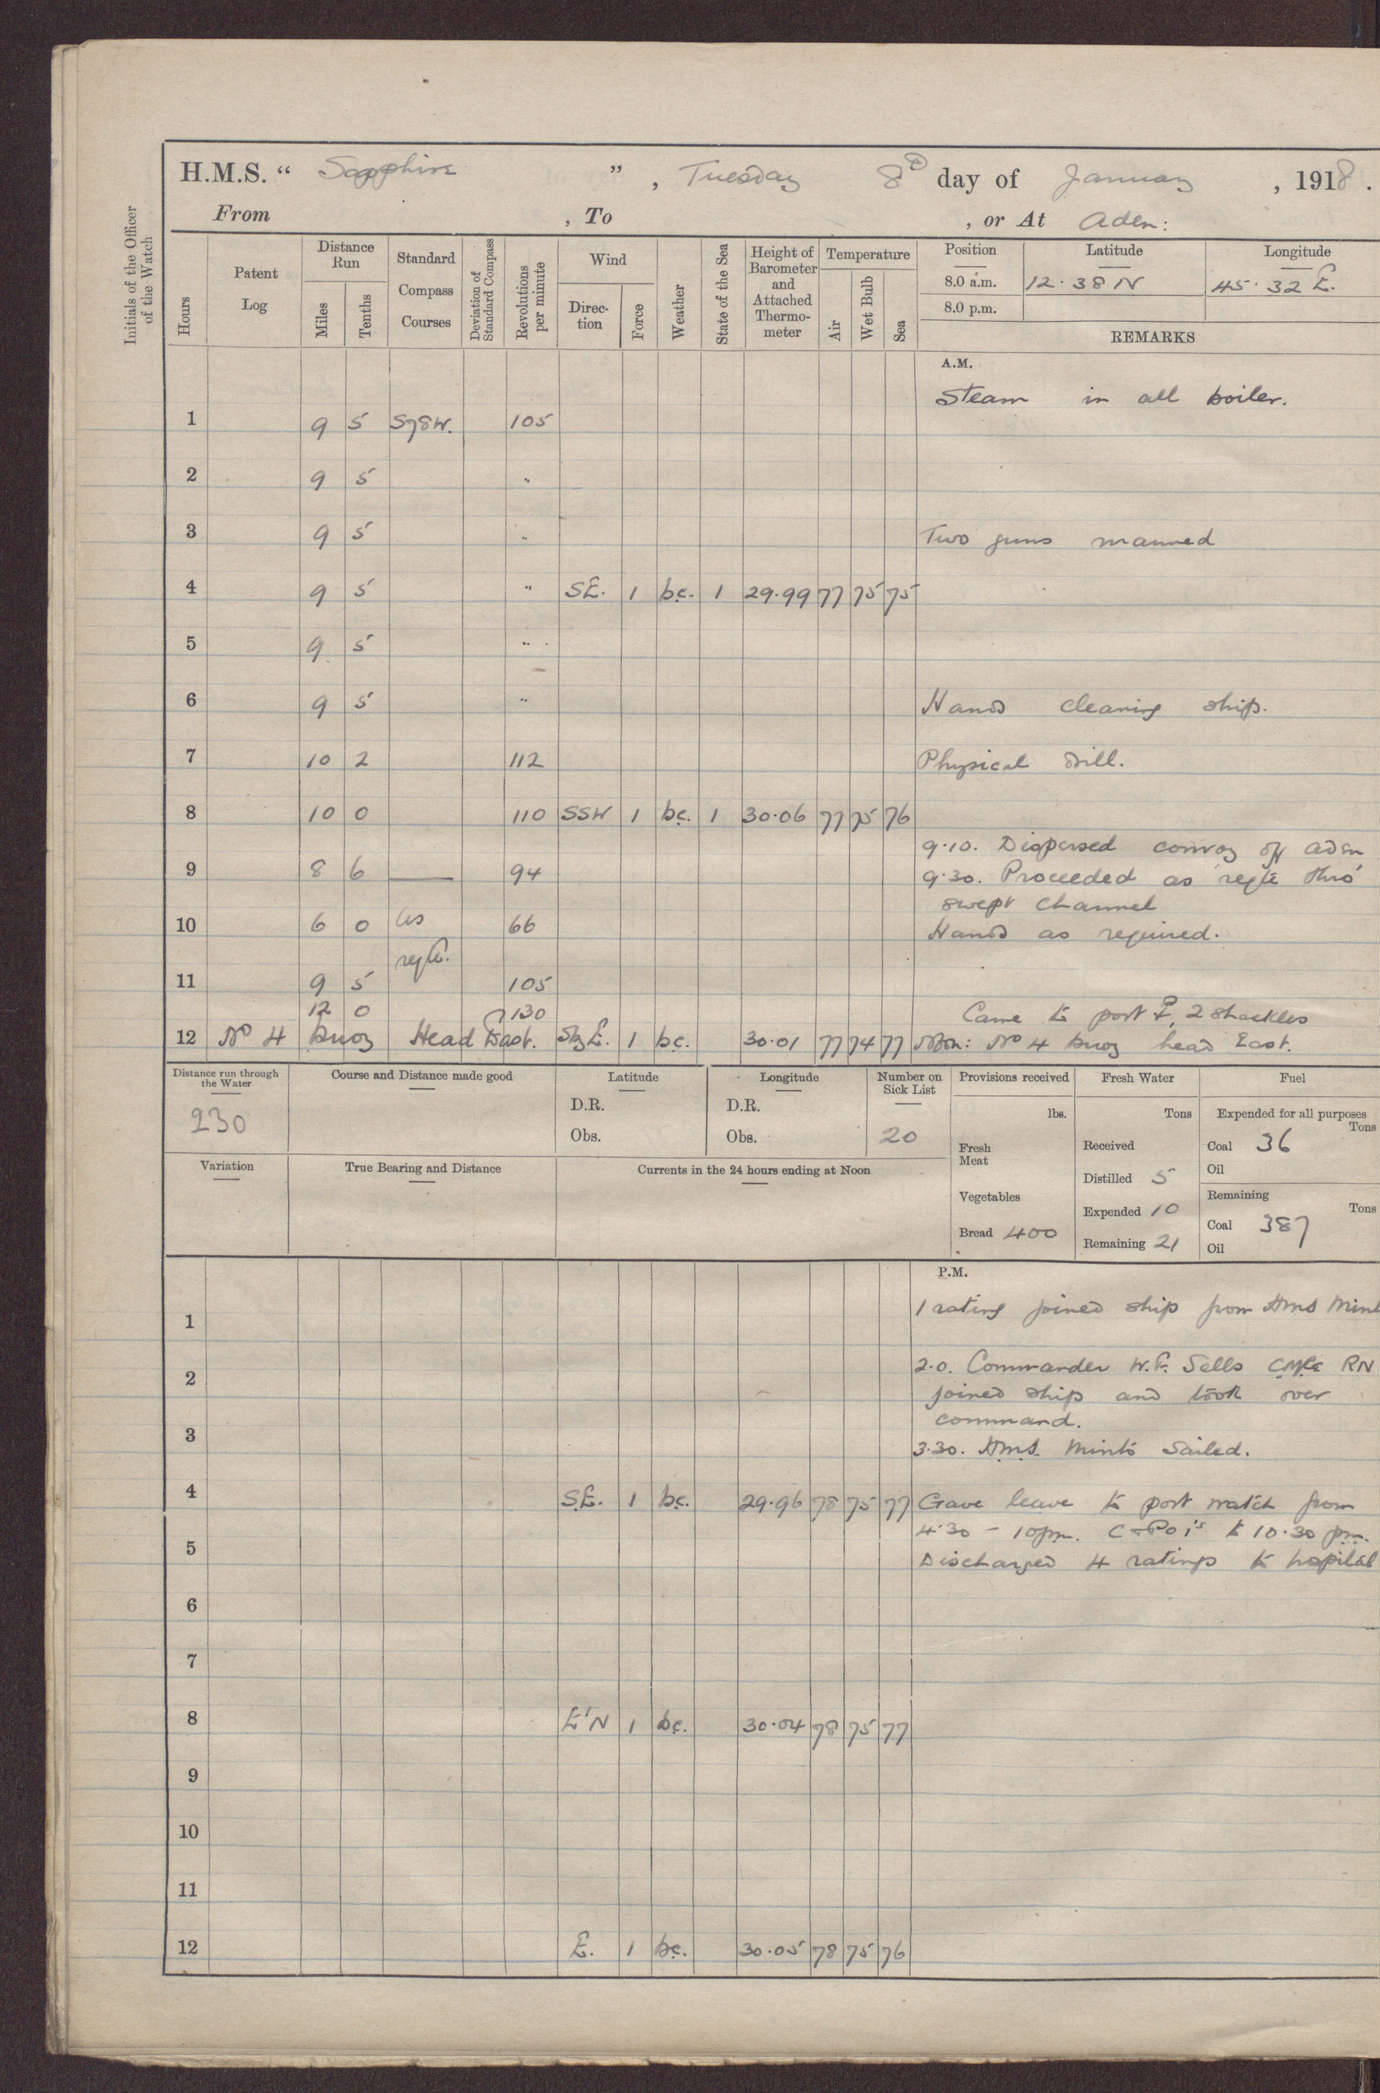 H.M.S. “ Sapphire ” , Tuesday 8th day of January , 1918 .
From , To , or At Aden :
Initials of the Officer of the Watch
Hours
Patent Log
Distance Run
Miles
Tenths
Standard Compass Courses
Deviation of Standard Compass
Revolutions per minute
Wind
Direc-tion
Force
Weather
State of the Sea
Height of Barometer and Attached Thermo-meter
Temperature
Air
Wet Bulb
Sea
Position Latitude Longitude
8.0 a.m. 12. 38 N 45. 32 E.
8.0 p.m.
REMARKS
A.M.
Steam in all boiler.
1 9 5 S78W. 105
2 9 5 "
3 9 5 " Two guns manned
4 9 5 " SE. 1 bc. 1 29.99 77 75 75
5 9 5 "
6 9 5 " Hands cleaning ship.
7 10 2 112 Physical drill.
8 10 0 110 SSW 1 bc. 1 30.06 77 75 76
9.10. Dispersed convoy off Aden
9 8 6 — 94 9.30. Proceeded as req'te thro'
swept channel
10 6 0 As 66 Hands as required.
reqte.
11 9 5 105
12 0 130 Came to port ⚓, 2 shackles
12 No 4 buoy Head East. SbyE. 1 bc. 30.01 77 74 77 Noon: No 4 buoy head East.
Distance run through the Water
230
Course and Distance made good
Latitude
D.R.
Obs.
Longitude
D.R.
Obs.
Number on Sick List
20
Provisions received
lbs.
Fresh Meat
Vegetables
Bread 400
Fresh Water
Tons
Received
Distilled 5
Expended 10
Remaining 21
Fuel
Expended for all purposes
Tons
Coal 36
Oil
Remaining
Tons
Coal 387
Oil
Variation
True Bearing and Distance
Currents in the 24 hours ending at Noon
P.M.
1 1 rating joined ship from HMS Mint
2.0. Commander W.F. Sells CMG RN
2 joined ship and took over
command.
3 3.30. HMS. Minto Sailed.
4 S.E. 1 bc. 29.96 78 75 77 Gave leave to port watch from
4.30 - 10pm. C & PO's to 10.30 pm.
5 Discharged 4 ratings to hospital
6
7
8 E'N 1 bc. 30.04 78 75 77
9
10
11
12 E. 1 bc. 30.05 78 75 76